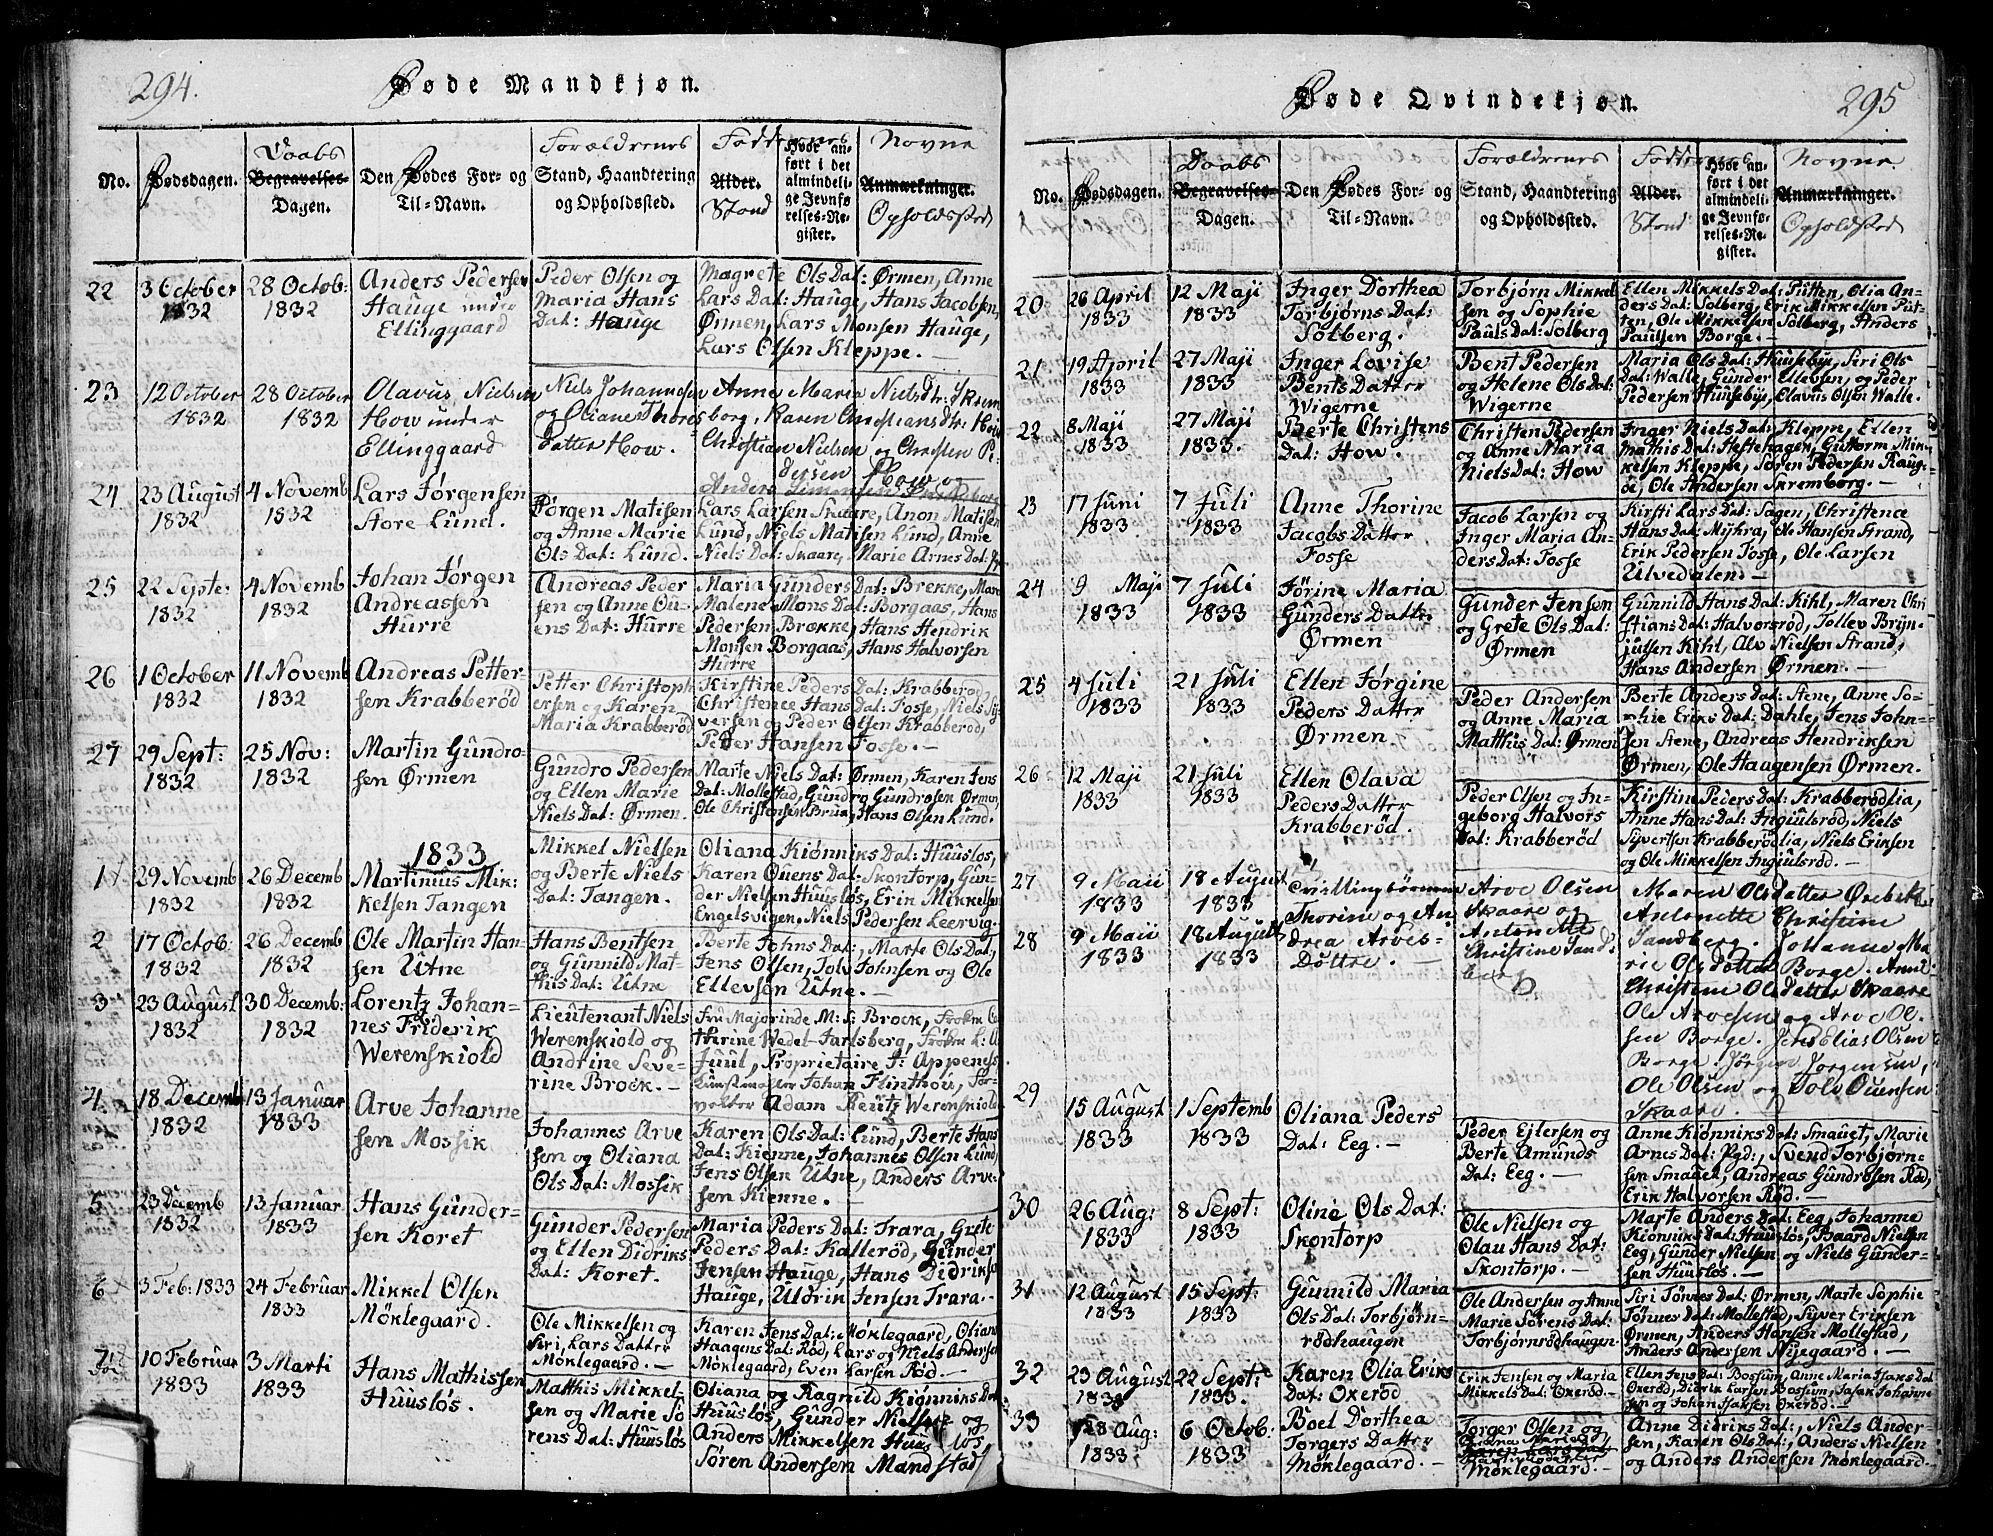 294.
Døde Mandkjøn.
No.
Dødsdagen.
Daabs
Begravelses-
Dagen.
Den Dødes For- og
Til-Navn.
Forældrenes
Stand, Haandtering
og Opholdsted.
Faddernes
Alder.
Stand
Hvor an-
ført i det
almindeli-
ge Jevnfø-
relses-Re-
gister.
Navne
Anmærkninger.
Opholdsted
22
3 October
1832
28 Octob:
1832
Anders Pedersen
Hauge under
Ellinggaard
Peder Olsen og
Maria Hans
Dat: Hauge
Magrete Ols Dat: Ørmen, Anne
Lars Dat: Hauge, Hans Jacobsen,
Ørmen, Lars Monsen Hauge,
Lars Olsen Kleppe.
23
12 October
1832
28 October
1832
Olavus Nielsen
How under
Ellinggaard
Niels Johannesen
og Oliane Thores
datter How.
Anne Maria Nielsdtr: Skrem
borg, Karen Christiansdtr: How
Christian Nielsen og Christen Pe
dersen How og
Anders Simensen
24
23 August
1832
4 Novemb
1832
Lars Jørgensen
Store Lund.
Jørgen Matisen
og Anne Marie
Ols Dat: Lund.
Lars Larsen Skaare, Anon Matisen
Lund, Niels Matisen Lund, Anne
Niels Dat: Skaare, Marie Arnes Dat:
25
22 Septe:
1832
4 Novemb
1832
Johan Jørgen
Andreassen
Hurre
Andreas Peder
sen og Anne Ou-
ens Dat: Hurre
Maria Gunders Dat: Brekke, Mari
Malene Mons Dat: Borgaas, Hans
Pedersen Brække, Hans Hendrik
Monsen Borgaas, Hans Halvorsen
Hurre
26
1 October
1832
11 Novemb
1832
Andreas Petter-
sen Krabberød
Petter Christoph
ersen og Karen
Maria Krabberød
Kirstine Peders Dat: Krabberød
Christence Hans Dat: Fosse, Niels Sy
versen og Peder Olsen Krabberød,
Peder Hansen Fosse. —
27
29 Sept:
1832
25 Nov:
1832
Martin Gundro-
sen Ørmen
Gundro Pedersen
og Ellen Marie
Niels Dat: Ørmen.
Marte Niels Dat: Ørmen, Karen Jens
Dat: Mollestad, Gundro Gundrosen Ørmen,
Ole Christensen Brua, Hans Olsen Lund.
1833
1
29 Novemb
1832
26 Decemb
1832
Martinius Mik:
kelsen Tangen
Mikkel Nielsen
og Berte Niels
Dat: Tangen.
Oliana Kiønniks Dat: Huusløs,
Karen Ouens Dat: Skontorp, Gun-
der Nielsen Huusløs, Erik Mikkelsen
Engelsvigen, Niels Pedersen Leervig.
2
17 Octob:
1832
26 Decemb
1832
Ole Martin Han-
sen Utne
Hans Bentsen
og Gunnild Mat-
this Dat: Utne
Berte Johns Dat:, Marte Ols Dat:,
Jens Olsen, Tolv Johnsen og Ole
Ellevsen Utne. —
3
23 August
1832
30 Decemb:
1832
Lorentz Johan-
nes Friderik
Werenskiold
Lieutenant Niels
Werenskiold og
Andrine Seve-
rine Brock. —
Fru Majorinde M: S: Brock, Frøken Ca
thrine Wedel-Jarlsberg, Frøken L: A
Juul, Proprietaire J: Appenes
Johan Flinthou,
Adam Werenskiold
4
18 Decemb
1832
13 Januar
1833
Arve Johanne
sen Mossik
Johannes Arve
sen og Oliana
Ols Dat: Mossik
Karen Ols Dat: Lund, Berte Hans
Dat: Kienne, Johannes Olsen Lund,
Jens Olsen Utne, Anders Arve-
sen Kienne.
5
23 Decemb
1832
13 Januar
1833
Hans Gunder-
sen Koret
Gunder Pedersen
og Ellen Didriks
Dat: Koret.
Maria Peders Dat: Trara, Grete
Peders Dat: Kallerød, Gunder
Jensen Hauge, Hans Didriksen
Hauge, Uldrik Jensen Trara.
6
3 Feb: 1833
24 Februar
1833
Mikkel Olsen
Møklegaard.
Ole Mikkelsen og
Siri, Lars Datter
Møklegaard. —
Karen Jens Dat: Møklegaard, Oliana
Haagens Dat: Rød, Lars og Niels Andersen
Møklegaard, Even Larsen Rød.
7
10 Februar
1833
3 Marti
1833
Hans Mathissen
Huusløs.
Matthis Mikkel-
sen og Marie Sø
rens Dat: Huusløs
Oliana og Ragnild Kiønniks Dat
Huusløs, Gunder Nielsen og
Anders Mikkelsen Huusløs
Søren Andersen Mandstad
295
Døde Qvindekjøn.
No.
Dødsdagen.
Daabs
Begravelses-
Dagen.
Den Dødes For- og
Til-Navn.
Forældrenes
Stand, Haandtering
og Opholdsted.
Faddernes
Alder.
Stand
Hvor an-
ført i det
almindeli-
ge Jevnfø-
relses-Re-
gister.
Navne
Anmærkninger.
Opholdsted
20
26 April
1833
12 Maji
1833
Inger Dorthea
Torbjørns Dat:
Solberg.
Torbjørn Mikkel
sen og Sophie
Pauls Dat: Solberg
Ellen Mikkels Dat: Pütten, Olia An-
ders Dat: Solberg, Erik Mikkelsen Püt-
ten, Ole Mikkelsen Solberg, Anders
Paulsen Borge. —
21
19 April
1833
27 Maji
1833
Inger Lovise
Bents Datter
Wigerne
Bent Pedersen
og Helene Ols Dat:
Wigerne
Maria Ols Dat: Huusebye, Siri Ols
Dat: Walle, Gunder Ellevsen, og Peder
Pedersen Huusebye, Olavus Olsen Walle.
22
8 Maji
1833
27 Maji
1833.
Berte Christens
Dat: How
Christen Pedersen
og Anne Maria
Niels Dat: How
Inger Niels Dat: Kleppe, Ellen
Mathis Dat: Heftehagen, Guttorm Mik-
kelsen Kleppe, Søren Pedersen Haug-
de, Ole Andersen Skremborg. —
23
17 Juni
1833
7 Juli
1833
Anne Thorine
Jacobs Datter
Fosse
Jacob Larsen og
Inger Maria An-
ders Dat: Fosse
Kirsti Lars Dat: Sagen, Christence
Hans Dat: Myhra, Ole Hansen Strand,
Erik Pedersen Fosse, Ole Larsen
Ulvedalen. —
24
9 Maji
1833
7 Juli
1833
Jørine Maria
Gunders Datter
Ørmen
Gunder Jensen
og Grete Ols Dat:
Ørmen
Gunnild Hans Dat: Kihl, Maren Chri
stians Dat: Halvorsrød, Tollev Bryn-
julsen Kihl, Alv Nielsen Strand,
Hans Andersen Ørmen. —
25
4 Juli
1833
21 Juli
1833
Ellen Jørgine
Peders Datter
Ørmen
Peder Andersen
og Anne Maria
Matthis Dat: Ørmen
Berte Anders Dat: Stene, Anne So-
phie Eriks Dat: Dahle, Jens John-
sen Stene, Andreas Hendriksen
Ørmen, Ole Haugensen Ørmen.
26
12 Maji
1833
21 Juli
1833
Ellen Olava
Peders Datter
Krabberød.
Peder Olsen og In-
geborg Halvors
Dat: Krabberød
Kirstine Peders Dat: Krabberødlia,
Anne Hans Dat: Ingiulsrød, Niels
Syversen Krabberødlia, Niels Eriksen
og Ole Mikkelsen Ingiulsrød. —
27
9 Maii
1833
18 August
1833
28
9 Maii
1833
18 August
1833
Tvillingbørnene
Thorine og An
drea Arves-
Døttre. —
Arve Olsen
Skaare og
Antonette
Christine Sand
berg
Maren Olsdatter Ørebek,
Antonette Christine
Sandberg. Johanne Ma
rie Olsdatter Borge. Anne
Christine Olsdatter Skaare
Ole Arvesen og Arve Ol
sen Borge. Jens Elias Olsen
Borge Jørgen Jørgensen,
Ole Olsen og Tolv Ouensen
Skaare.
29
15 August
1833
1 Septemb
1833
Oliana Peders
Dat: Eeg. —
Peder Ejlersen og
Berte Amunds
Dat: Eeg. —
Anne Kiønniks Dat: Smauet, Marie
Arnes Dat: Pgd:, Svend Torbjørn-
sen Smauet, Andreas Gundrosen Rød,
Erik Halvorsen Rød. —
30
26 Aug:
1833
8 Sept:
1833
Oline Ols Dat:
Skontorp
Ole Nielsen og
Olau Hans Dat:
Skontorp. —
Marte Anders Dat: Eeg, Johanne
Kiønniks Dat: Huusløs, Baard Nielsen
Eeg, Gunder Nielsen og Niels Gunder-
sen Huusløs. —
31
12 August
1833
15 Sept:
1833
Gunnild Maria
Ols Dat: Torbjørn-
rødhaugen
Ole Andersen og Anne
Marie Sørens Dat:
Torbjørnrødhaugen
Siri Tønnes Dat: Ørmen, Marte Sophie
Tønnes Dat: Mollestad, Syver Eriksen
Ørmen, Anders Hansen Mollestad,
Anders Andersen Nyegaard. —
32
23 August
1833
22 Sept:
1833.
Karen Olia Eriks
Dat: Oxerød
Erik Jensen og Maria
Mikkels Dat: Oxerød. —
Ellen Jens Dat: Bossum, Anne Maria Isaks Dat
Oxerød, Didrik Larsen Bossum, Isak Johanne
sen og Johan Isaksen Oxerød. —
33
28 Aug:
1833
6 Octob:
1833
Boel Dorthea
Torgers Datter
Møklegaard
Torger Olsen og
Karen Lars Dat:
Møklegaard. —
Anne Didriks Dat:, Niels Ander
sen, Karen Ols Dat:, Anders Nielsen
og Anders Andersen Møklegaard. —